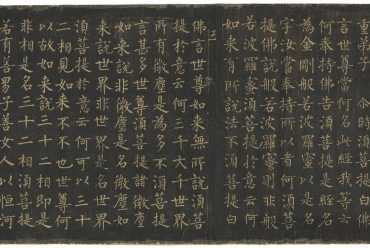 重弟子尒時須菩提白佛
言世尊當何名此經我等云
何奉持佛告須菩提是經名
為金剛般若波羅蜜以是名
字汝當奉持所以者何須菩
提佛說般若波羅蜜則非般
若波羅蜜須菩提於意云何
如來有所說法不須菩提白
佛言世尊如來無所說須菩
提於意云何三千大千世界
所有微塵是為多不須菩提
言甚多世尊須菩提諸微塵
如來說非微塵是名微塵
如來說世界非世界是名世界
須菩提於意云何可以三十
二相見如來不不也世尊何
以故如來說三十二相即是
非相是名三十二相須菩提
若有善男子善女人以恒河